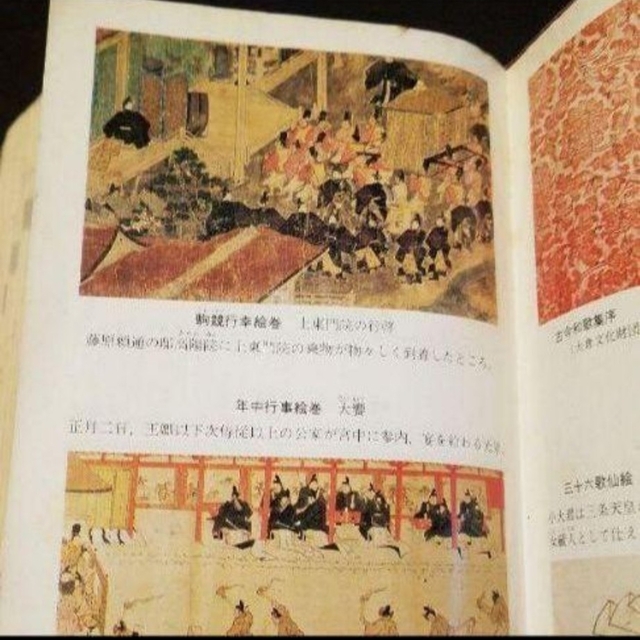 駒競行幸絵巻　上東門院の行啓
藤原頼通の邸高陽院に上東門院の乗物が物々しく到着したところ。
年中行事絵巻　大饗
正月二日，王卿以下次侍従以上の公家が宮中に参内，宴を給わる
古今和歌集序
三十六歌仙絵
小大君は三条天皇
女蔵人として仕え